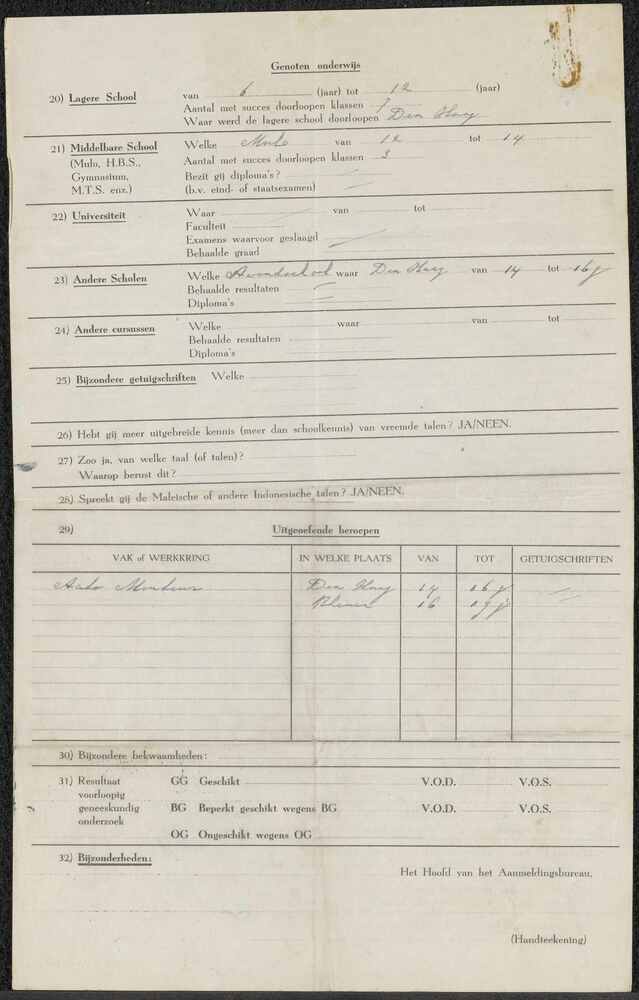 Genoten onderwijs
20) Lagere School van 6 (jaar) tot 12 (jaar)
Aantal met succes doorloopen klassen
Waar werd de lagere school doorloopen Den Haag
21) Middelbare School Welke Mulo van 12 tot 14
(Mulo, H.B.S., Aantal met succes doorloopen klassen 3
Gymnasium, Bezit gij diploma's?
M.T.S. enz.) (b.v. eind- of staatsexamen)
22) Universiteit Waar van tot
Faculteit
Examens waarvoor geslaagd
Behaalde graad
23) Andere Scholen Welke Avondschool waar Den Haag van 14 tot 16 j
Behaalde resultaten
Diploma's
24) Andere cursussen Welke waar van tot
Behaalde resultaten
Diploma's
25) Bijzondere getuigschriften Welke
26) Hebt gij meer uitgebreide kennis (meer dan schoolkennis) van vreemde talen? JA/NEEN.
27) Zoo ja, van welke taal (of talen)?
Waarop berust dit?
28) Spreekt gij de Maleische of andere Indonesische talen? JA/NEEN.
29) Uitgeoefende beroepen
VAK of WERKKRING IN WELKE PLAATS VAN TOT GETUIGSCHRIFTEN
Auto Monteur Den Haag 14 16 j
16
30) Bijzondere bekwaamheden:
31) Resultaat GG Geschikt V.O.D. V.O.S.
voorloopig
geneeskundig BG Beperkt geschikt wegens BG V.O.D. V.O.S.
onderzoek
OG Ongeschikt wegens OG
32) Bijzonderheden:
Het Hoofd van het Aanmeldingsbureau,
(Handteekening)